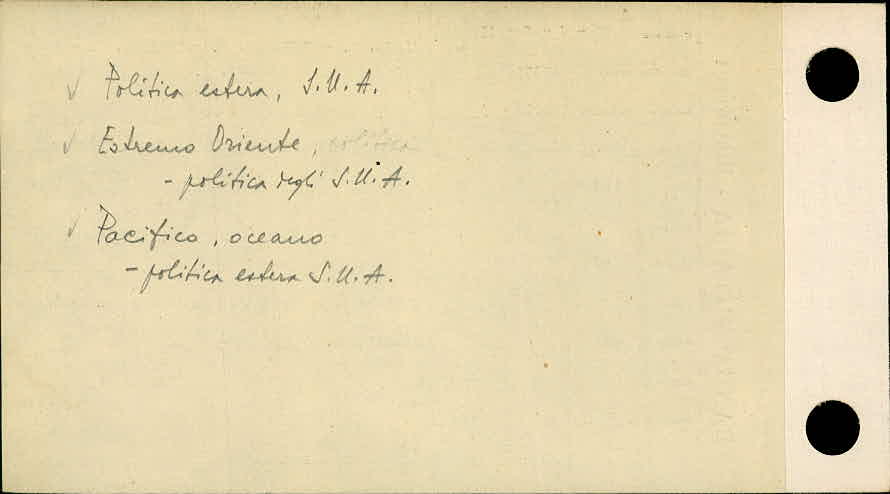 ✓ Politica estera, S.U.A.
✓ Estremo Oriente, politica
- politica degli S.U.A.
✓ Pacifico, oceano
- politica estera S.U.A.